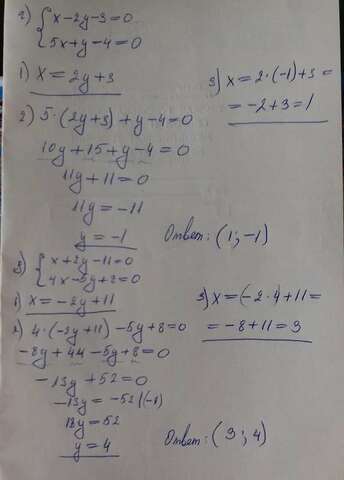 г) { x - 2y - 3 = 0
5x + y - 4 = 0
1) x = 2y + 3
2) 5·(2y+3) + y - 4 = 0
10y + 15 + y - 4 = 0
11y + 11 = 0
11y = -11
y = -1
3) x = 2·(-1) + 3 =
= -2 + 3 = 1
Ответ: (1; -1)
в) { x + 2y - 11 = 0
4x - 5y + 8 = 0
1) x = -2y + 11
2) 4·(-2y+11) - 5y + 8 = 0
-8y + 44 - 5y + 8 = 0
-13y + 52 = 0
-13y = -52 |(-1)
13y = 52
y = 4
3) x = (-2·4 + 11 =
= -8 + 11 = 3
Ответ: (3; 4)